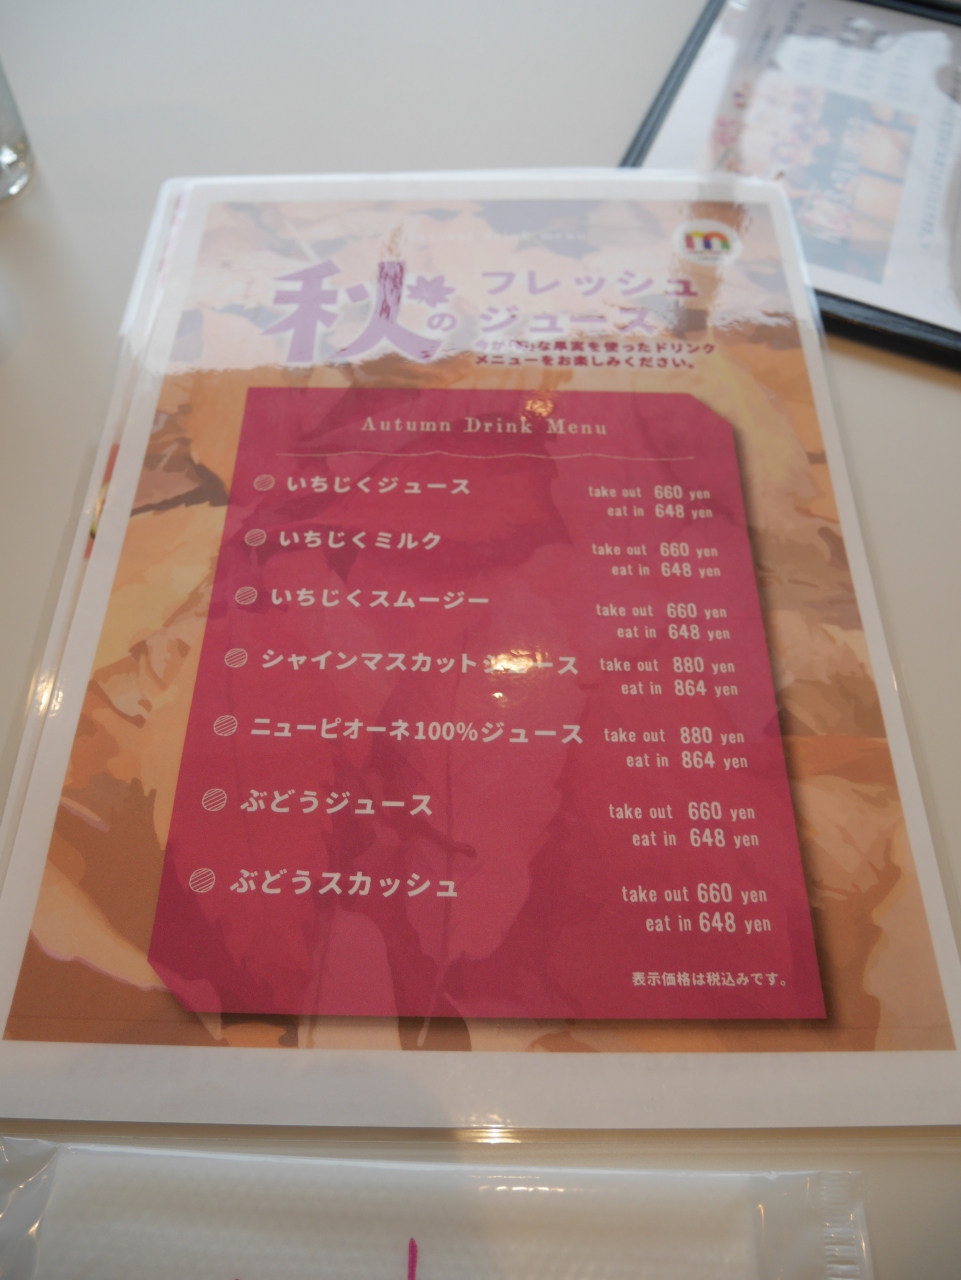 秋の
フレッシュ
ジュース
今が旬な果実を使ったドリンク
メニューをお楽しみください。
Autumn Drink Menu
いちじくジュース
take out 660 yen
eat in 648 yen
いちじくミルク
take out 660 yen
eat in 648 yen
いちじくスムージー
take out 660 yen
eat in 648 yen
シャインマスカットジュース
take out 880 yen
eat in 864 yen
ニューピオーネ100%ジュース
take out 880 yen
eat in 864 yen
ぶどうジュース
take out 660 yen
eat in 648 yen
ぶどうスカッシュ
take out 660 yen
eat in 648 yen
表示価格は税込みです。